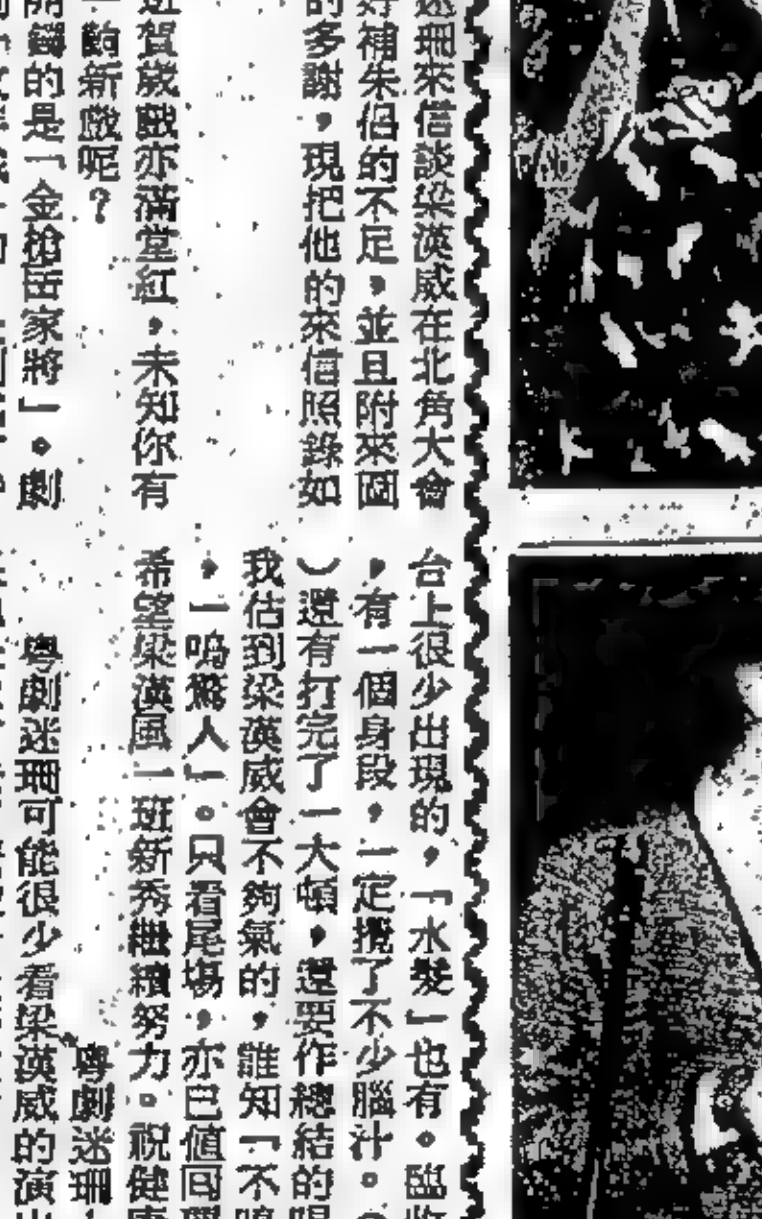 迷珊來信談梁漢威在北角大會
好補朱伯的不足，並且附來圖
的多謝，現把他的來信照錄如
近賀歲戲亦滿堂紅，未知你有
齣新戲呢？
開鑼的是「金槍岳家將」。劇
台上很少出現的，「水髮」也有。臨收
，有一個身段，一定攪了不少腦汁。
）還有打完了一大頓，還要作總結的唱
我估到梁漢威會不夠氣的，誰知「不鳴
，一鳴驚人」。只看尾場，亦已值回票
希望梁漢風一班新秀繼續努力。祝健康
粵劇迷珊
粵劇迷珊可能很少看梁漢威的演出